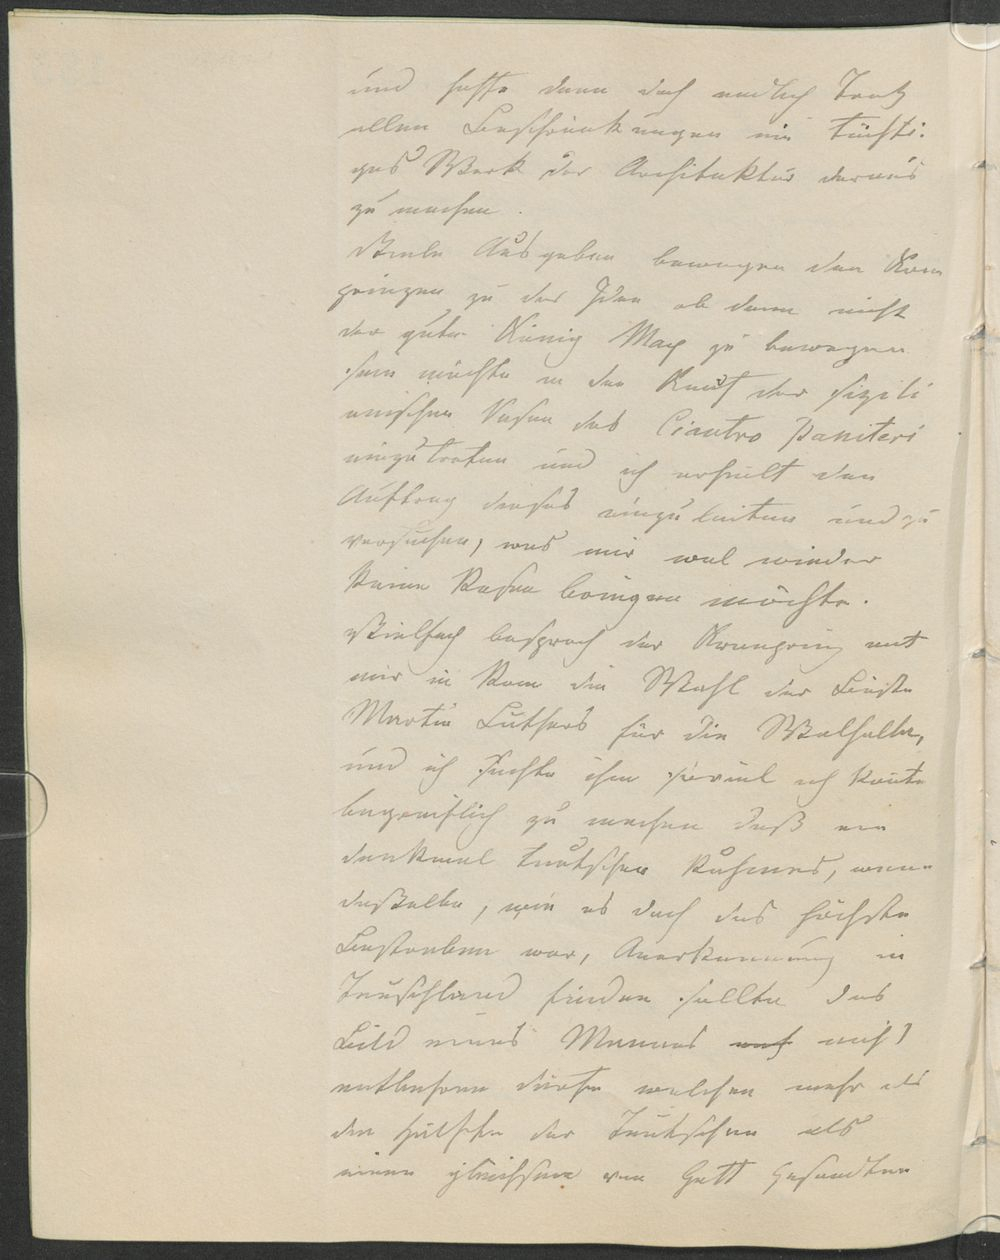 und hoffe dann doch endlich Trotz
allen Beschränkungen ein tüchti:
ges Werk der Architektur daraus
zu machen.
Viele Ausgaben bewogen den Kron
prinzen zu der Idee ob denn nicht
der gute König Max zu bewegen
sein möchte in den Kauf der sizili
anischen Vasen des Ciantro Paniteri
einzutreten und ich erhielt den
Auftrag dieses einzuleiten und zu
versuchen, was mir wol wieder
keine Rosen bringen möchte.
Vielfach besprach der Kronprinz mit
mir in Rom die Wahl der Büste
Martin Luthers für die Walhalla,
und ich suchte ihm soviel ich konte
begreiflich zu machen daß ein
denkmal teutschen Ruhmes, wenn
dasselbe, wie es doch das höchste
Bestreben war, Anerkennung in
Teuschland finden sollte das
Bild eines Mannes nicht
entbehren dürfe welchen mehr als
die Hälfte der Teutschen als
einen gleichsam von Gott Gesandten